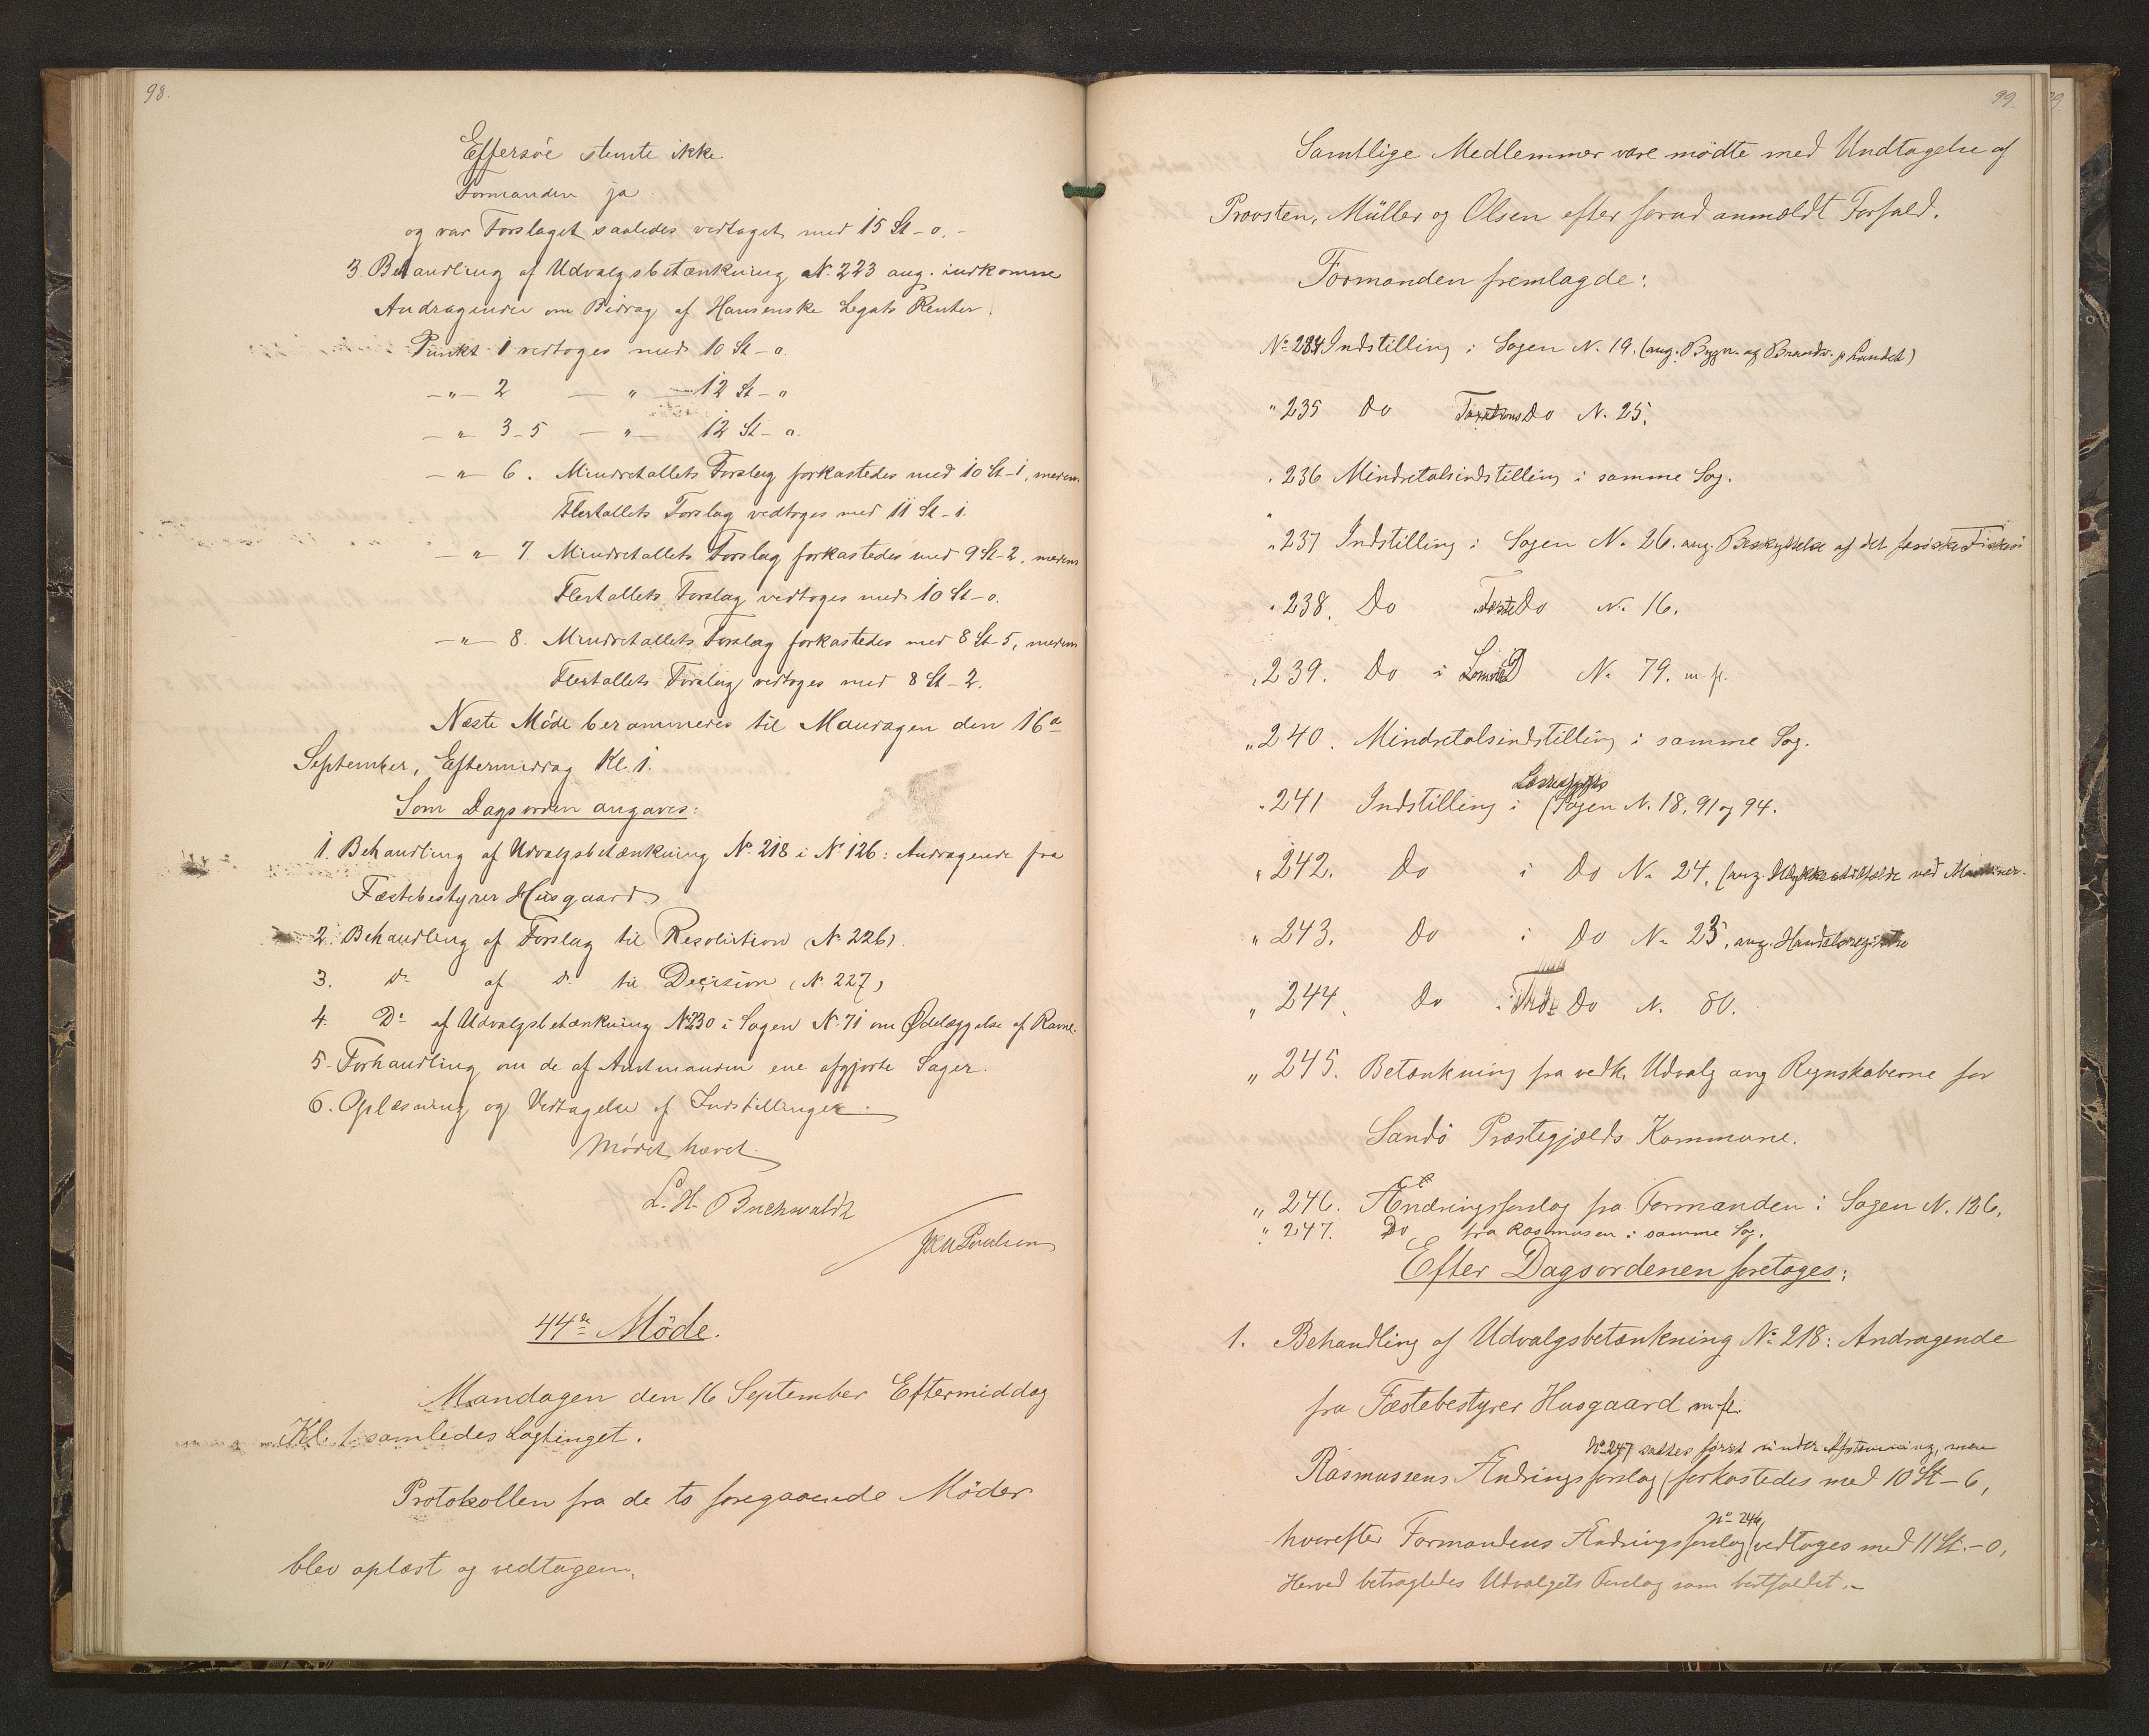 98.
Effersöe stemte ikke
Formanden ja
og var Forslaget saaledes vedtaget med 15 St - 0. -
3. Behandling af Udvalgsbetænkning N. 223 ang. indkomne
Andragender om Bidrag af Hansenske Legats Renter.
Punkt 1 vedtoges med 10 St - 0.
- " - 2 - " - 12 St - 0
- " - 3-5 - " - 12 St - 0.
- " - 6. Mindretallets Forslag forkastedes med 10 St - 1, medens
Flertallets Forslag vedtoges med 11 St - 1.
- " - 7. Mindretallets Forslag forkastedes med 9 St - 2, medens
Flertallets Forslag vedtoges med 10 St - 0.
- " - 8. Mindretallets Forslag forkastedes med 8 St - 5, medens
Flertallets Forslag vedtoges med 8 St - 2.
Næste Möde berammedes til Mandagen den 16de
September, Eftermiddag Kl. 1.
Som Dagsorden angaves:
1. Behandling af Udvalgsbetænkning No 218 i N 126: Andragende fra
Fæstebestyrer Husgaard.
2. Behandling af Forslag til Resolution (N. 226)
3. do af do til Decision (N. 227)
4. Do af Udvalgsbetænkning No 230 i Sagen N. 71 om Ødelæggelse af Ravne.
5. Forhandling om de af Amtmanden ene afgjorte Sager.
6. Oplæsning og Vedtagelse af Indstillinger.
Mödet hævet.
L. H. Buchwaldt
Poulsen
44de Möde.
Mandagen den 16 September Eftermiddag
Kl. 1 samledes Lagtinget.
Protokollen fra de to foregaaende Möder
blev oplæst og vedtagen.
99.
Samtlige Medlemmer vare mödte med Undtagelse af
Provsten, Müller og Olsen efter forud anmeldt Forfald.
Formanden fremlagde:
No 234 Indstilling i Sagen N. 19. (ang. Bygn. og Brandv. p. Landet)
" 235 Do Do N. 25.
" 236 Mindretalsindstilling i samme Sag.
" 237 Indstilling i Sagen N. 26. ang. Beskyttelse af det færöiske Fiskeri
" 238. Do Do N. 16.
" 239. Do i N. 79. m. fl.
" 240. Mindretalsindstilling i samme Sag.
" 241 Indstilling i Sagen N. 18, 91 og 94.
" 242. Do i Do N. 24, (ang. Ulykkestilfælde ved Maskiner.
" 243. Do i Do N. 23, ang. Handelsregistre
" 244. Do i Do N. 80.
" 245. Betænkning fra vedk. Udvalg ang Regnskaberne for
Sandö Præstegjælds Kommune.
" 246. Ændringsforslag fra Formanden i Sagen N. 126.
" 247. Do fra Rasmusen i samme Sag.
Efter Dagsordenen foretoges:
1. Behandling af Udvalgsbetænkning No 218: Andragende
fra Fæstebestyrer Husgaard m. fl.
No 247 sattes först under Afstemning, men
Rasmussens Ændringsforslag (forkastedes med 10 St - 6,
No 246
hvorefter Formandens Ændringsforslag (vedtoges med 11 St. - 0,
Herved betragtedes Udvalgets Forslag som bortfaldet. -